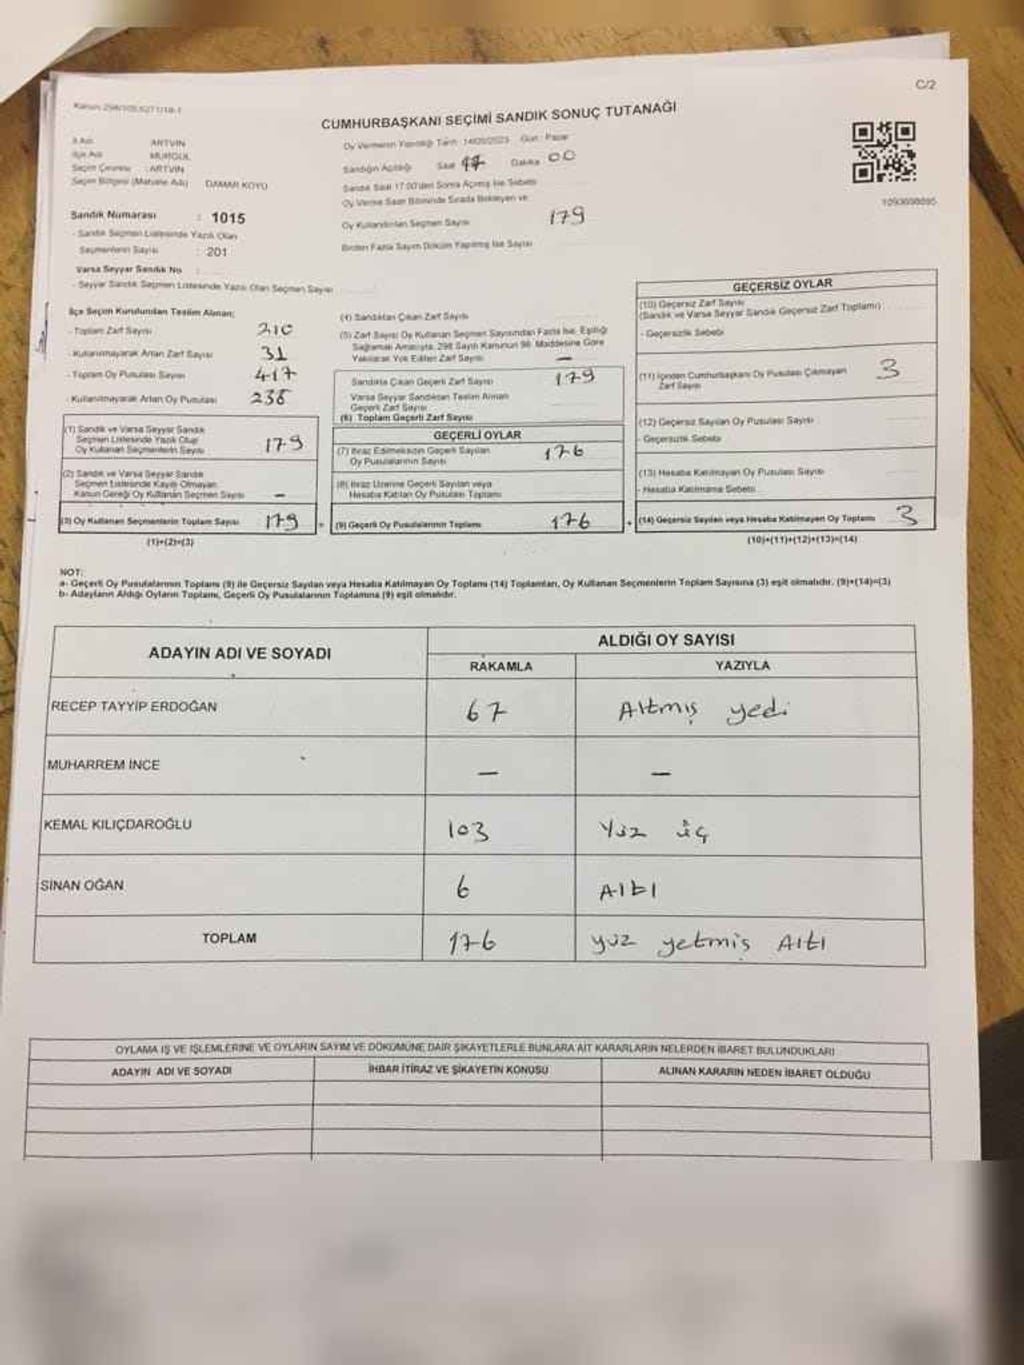 C/2
Kanun:298/105,6271/18-1
CUMHURBAŞKANI SEÇİMİ SANDIK SONUÇ TUTANAĞI
İl Adı ARTVİN
İlçe Adı MURGUL
Seçim Çevresi : ARTVİN
Seçim Bölgesi (Mahalle Adı) DAMAR KÖYÜ
Oy Vermenin Yapıldığı Tarih : 14/05/2023 Gün : Pazar
Sandığın Açıldığı Saat 17 Dakika 00
Sandık Saat 17.00'den Sonra Açılmış İse Sebebi
Oy Verme Saati Bitiminde Sırada Bekleyen ve
Oy Kullandırılan Seçmen Sayısı 179
Birden Fazla Sayım Döküm Yapılmış İse Sayısı
1093698895
Sandık Numarası : 1015
- Sandık Seçmen Listesinde Yazılı Olan
Seçmenlerin Sayısı : 201
Varsa Seyyar Sandık No :
- Seyyar Sandık Seçmen Listesinde Yazılı Olan Seçmen Sayısı
İlçe Seçim Kurulundan Teslim Alınan;
- Toplam Zarf Sayısı 210
- Kullanılmayarak Artan Zarf Sayısı 31
- Toplam Oy Pusulası Sayısı 417
- Kullanılmayarak Artan Oy Pusulası 238
(1) Sandık ve Varsa Seyyar Sandık
Seçmen Listesinde Yazılı Olup
Oy Kullanan Seçmenlerin Sayısı 179
(2) Sandık ve Varsa Seyyar Sandık
Seçmen Listesinde Kayıtlı Olmayan
Kanun Gereği Oy Kullanan Seçmen Sayısı -
(3) Oy Kullanan Seçmenlerin Toplam Sayısı 179
(1)+(2)=(3)
(4) Sandıktan Çıkan Zarf Sayısı
(5) Zarf Sayısı Oy Kullanan Seçmen Sayısından Fazla İse, Eşitliği
Sağlamak Amacıyla, 298 Sayılı Kanunun 98. Maddesine Göre
Yakılarak Yok Edilen Zarf Sayısı -
Sandıkta Çıkan Geçerli Zarf Sayısı 179
Varsa Seyyar Sandıktan Teslim Alınan
Geçerli Zarf Sayısı
(6) Toplam Geçerli Zarf Sayısı
GEÇERLİ OYLAR
(7) İtiraz Edilmeksizin Geçerli Sayılan
Oy Pusulalarının Sayısı 176
(8) İtiraz Üzerine Geçerli Sayılan veya
Hesaba Katılan Oy Pusulası Toplamı
(9) Geçerli Oy Pusulalarının Toplamı 176
GEÇERSİZ OYLAR
(10) Geçersiz Zarf Sayısı
(Sandık ve Varsa Seyyar Sandık Geçersiz Zarf Toplamı)
- Geçersizlik Sebebi
(11) İçinden Cumhurbaşkanı Oy Pusulası Çıkmayan
Zarf Sayısı 3
(12) Geçersiz Sayılan Oy Pusulası Sayısı
- Geçersizlik Sebebi
(13) Hesaba Katılmayan Oy Pusulası Sayısı
- Hesaba Katılmama Sebebi
(14) Geçersiz Sayılan veya Hesaba Katılmayan Oy Toplamı 3
(10)+(11)+(12)+(13)=(14)
NOT:
a- Geçerli Oy Pusulalarının Toplamı (9) ile Geçersiz Sayılan veya Hesaba Katılmayan Oy Toplamı (14) Toplamları, Oy Kullanan Seçmenlerin Toplam Sayısına (3) eşit olmalıdır. (9)+(14)=(3)
b- Adayların Aldığı Oyların Toplamı, Geçerli Oy Pusulalarının Toplamına (9) eşit olmalıdır.
ADAYIN ADI VE SOYADI ALDIĞI OY SAYISI
RAKAMLA YAZIYLA
RECEP TAYYİP ERDOĞAN 67 Altmış yedi
MUHARREM İNCE - -
KEMAL KILIÇDAROĞLU 103 Yüz üç
SİNAN OĞAN 6 Altı
TOPLAM 176 yüz yetmiş Altı
OYLAMA İŞ VE İŞLEMLERİNE VE OYLARIN SAYIM VE DÖKÜMÜNE DAİR ŞİKAYETLERLE BUNLARA AİT KARARLARIN NELERDEN İBARET BULUNDUKLARI
ADAYIN ADI VE SOYADI İHBAR İTİRAZ VE ŞİKAYETİN KONUSU ALINAN KARARIN NEDEN İBARET OLDUĞU